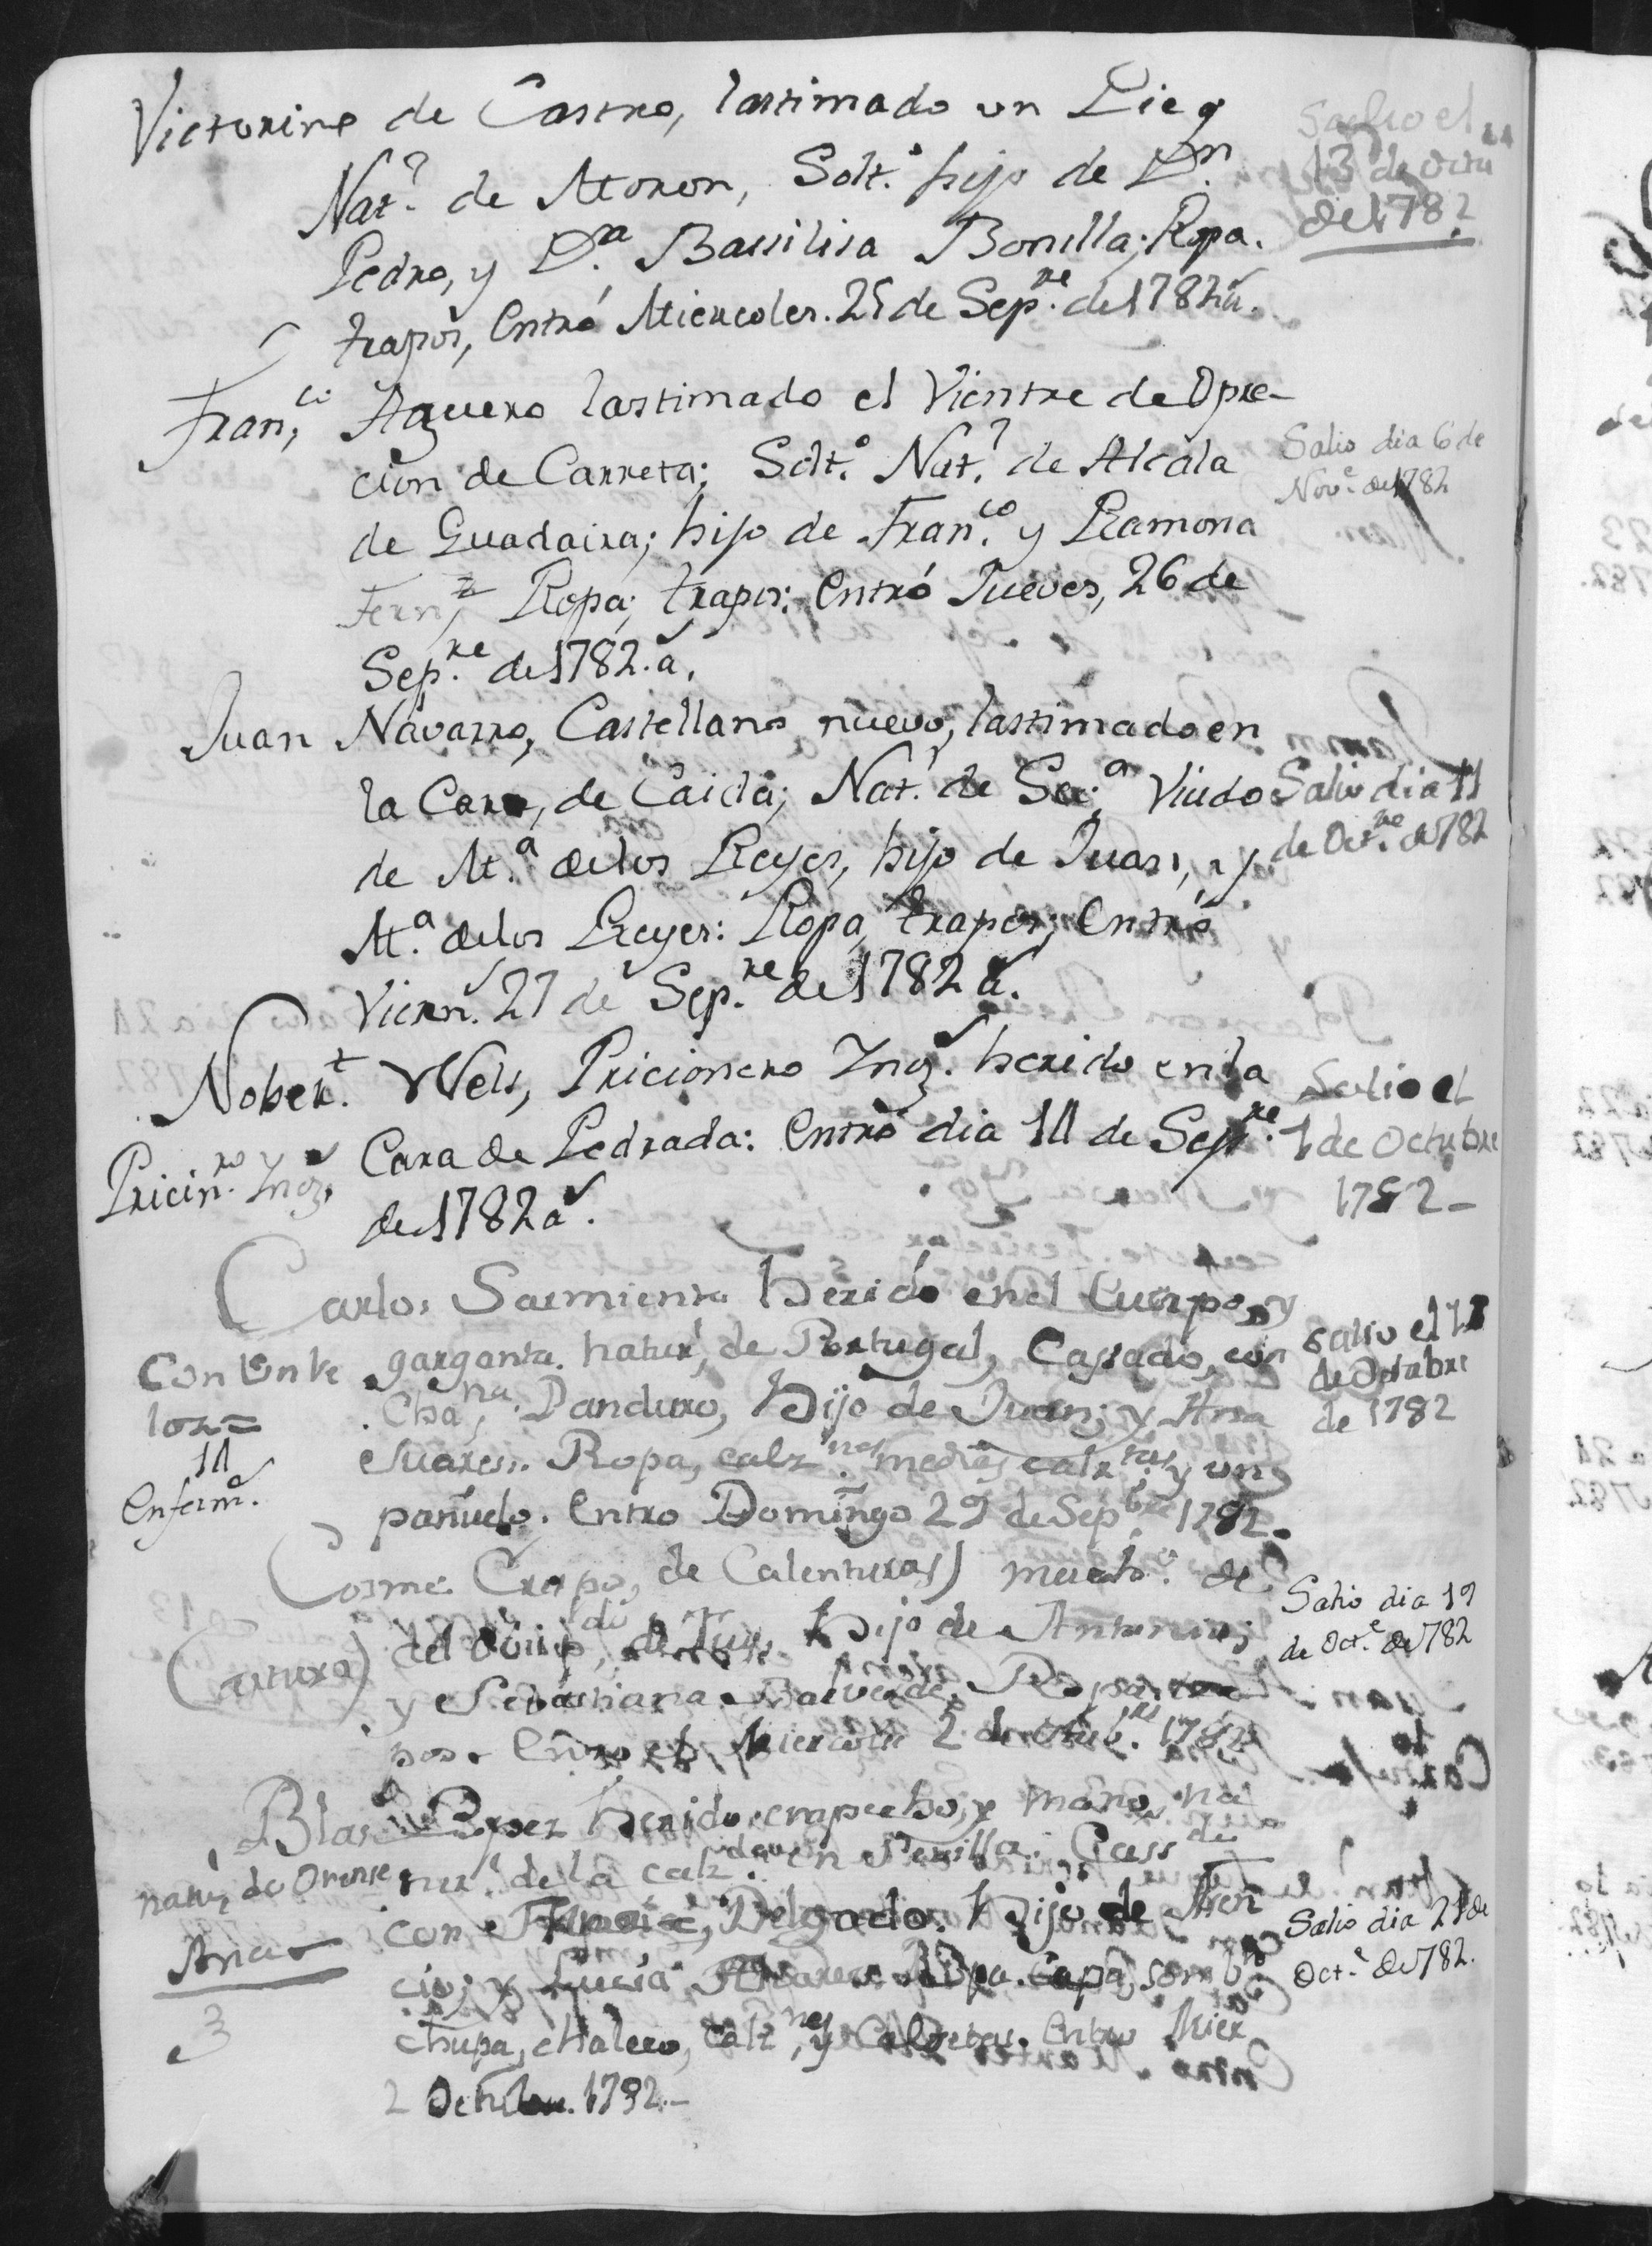 Victorino de Castro, lastimado un Pie
Nat.l de Moron, Solt.o hijo de D.n
Pedro, y D.a Bassilisa Bonilla; Ropa.
trapos, Entró Miercoles. 25 de Sep.re de 1782 a.
Salio el
13 de
de 1782
Fran.co Aguero lastimado el Vientre de Opre-
cion de Carreta; Solt.o Nat.l de Alcala
de Guadaira; hijo de Fran.co y Ramona
Fern.z Ropa; trapos; Entró Jueves, 26 de
Sep.re de 1782. a.
Salio dia 6 de
Nov.e de 1782
Juan Navarro, Castellano nuevo, lastimado en
la Cara, de Caida; Nat.l de Se.a Viudo
de M.a de los Reyes, hijo de Juan, y
M.a de los Reyes: Ropa, trapos; Entró
Viern. 27 de Sep.re de 1782 a.
Salio dia 11
de Oct.re de 1782
Nober.t Wels, Pricionero Ing.s herido en la
Cara de Pedrada: Entró dia 11 de Sep.re
de 1782 a.
Pricin.ro Ing.s
Salio el
1 de Octubre
1782-
Carlos Sarmiento Herido en el Cuerpo, y
garganta. natur.l de Portugal, Cassado, con
Cha.na Danduro, Hijo de Juan; y Ana
Suares. Ropa, calz.nes medias calz.tas y un
pañuelo. Entro Domingo 29 de Sep.bre 1782.
Con Unve
lor=
11
Enferm.a
Salio el 11
de Octubre
de 1782
Cosme Crespo, de Calenturas)
del de Tuy. Hijo de Antonio;
y Sebastiana Balverde, Ropa
Entro el Miercoles 2 de Octub.re 1782
Salio dia 19
de Oct.e de 1782
Blas Lopez Herido en pecho, y mano, na
tur.l de la en Sevilla. Cass.do
con Delgado. Hijo de Aten
cio; y Lucia Ropa. Capa, somb.o
chupa, chaleco, calz.nes y Calzetas. Entro Mier.
2 Octubre. 1782.-
natur.l de Orense
Ana
3
Salio dia 21 de
Oct.e de 1782.